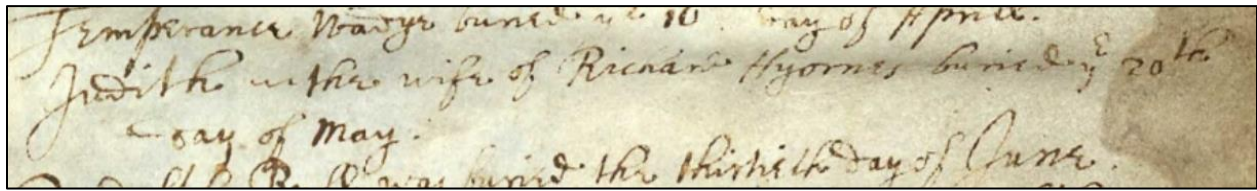 Temperance Wadge buried ye 10 day of Aprill.
Judith the wife of Richard Hyornes buried ye 20th
day of May.
was buried the thirtieth day of June.